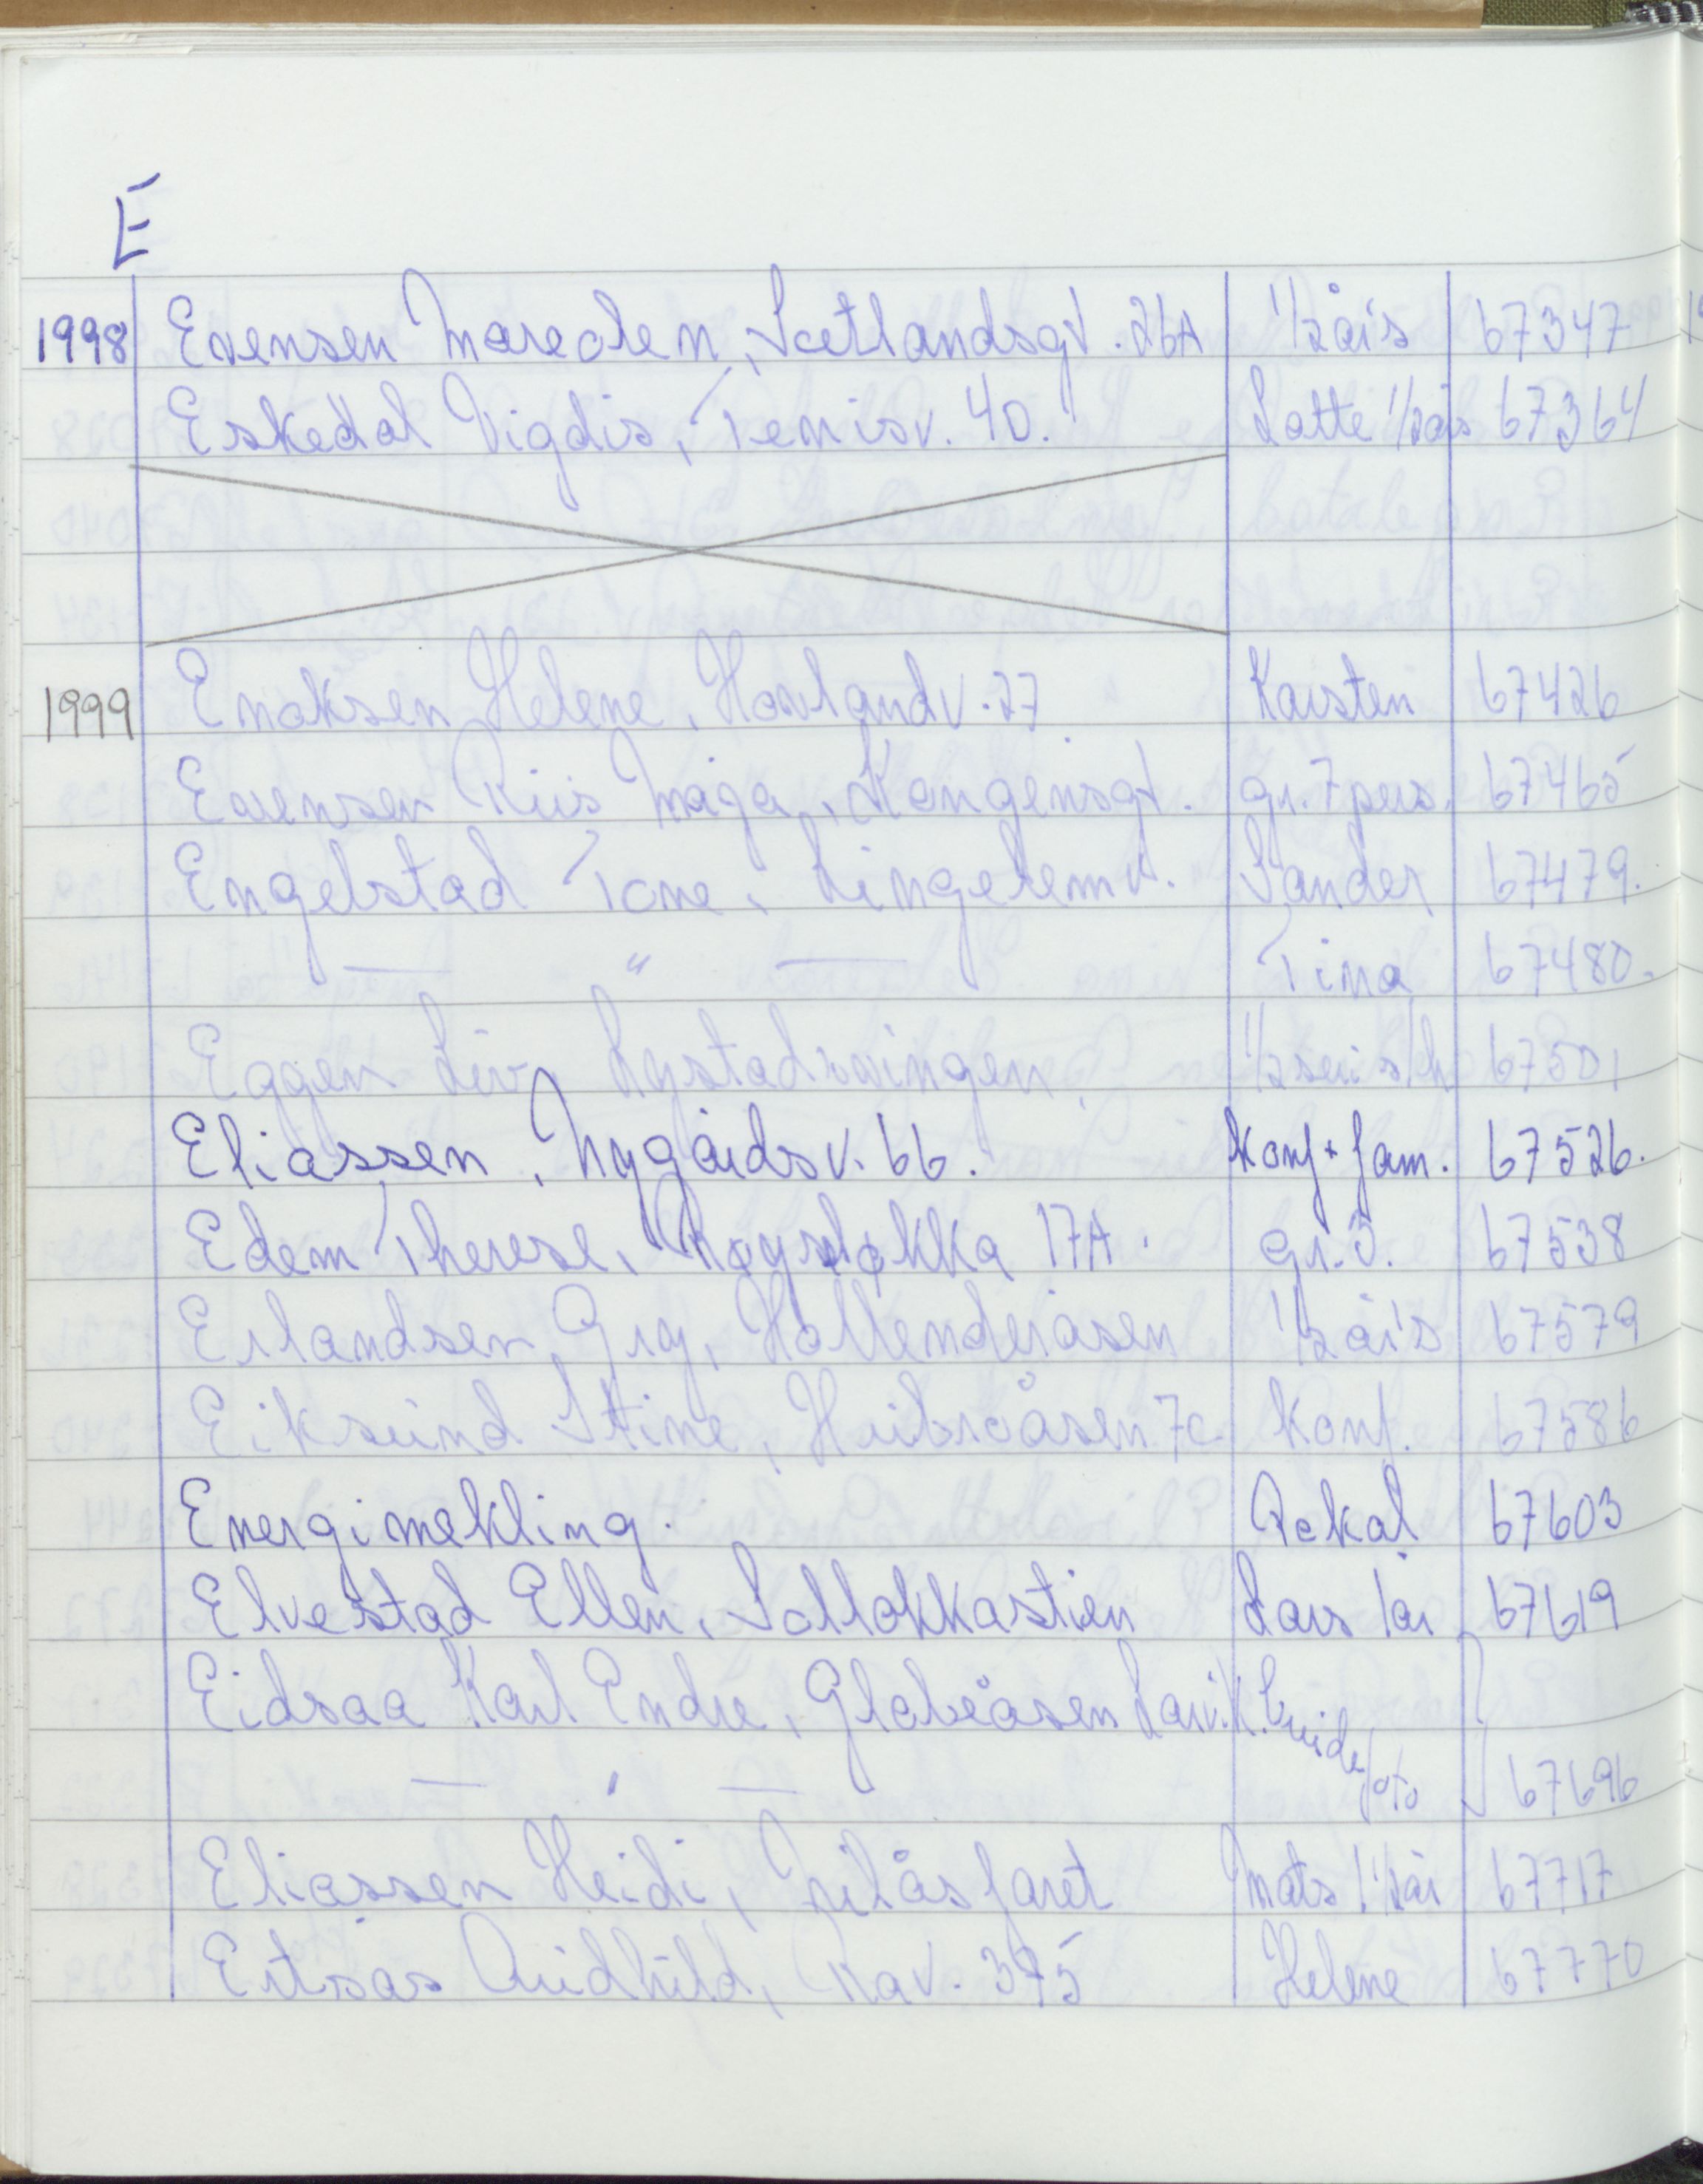 E
1998 Evensen Mareden, Scetlandsgt. 26A 1/2 års 67347
Eskedal Vigdis, Tenisv. 40. Lotte 1/2 års 67364
1999 Enoksen Helene, Hovlandv. 27 Karsten 67426
Evensen Riis Maja, Kongensgt. gr. 7 pers. 67465
Engelstad Tone, Lingelemv. Sander 67479.
— " — Tina 67480.
Eggen Liv, Nystadsvingen 1/2 67501
Eliassen, Nygårdsv. 66. Konf + fam. 67526.
Edem Therese, Røysløkka 17A. gr. 5. 67538
Erlandsen Gry, Hollenderåsen 1/2 års 67579
Eiksund Stine, Hvibroåsen 7c. Konf. 67586
Energimekling. lokal 67603
Elvestad Ellen, Solløkkastien Lars 1 år 67619
Eidsaa Karl Endre, Globeåsen Larvik. brude
— " — foto 67696
Eliassen Heidi, Nilåsfaret Mats 1 1/2 år 67717
Ertsas Audhild, Rav. 375 Helene 67770